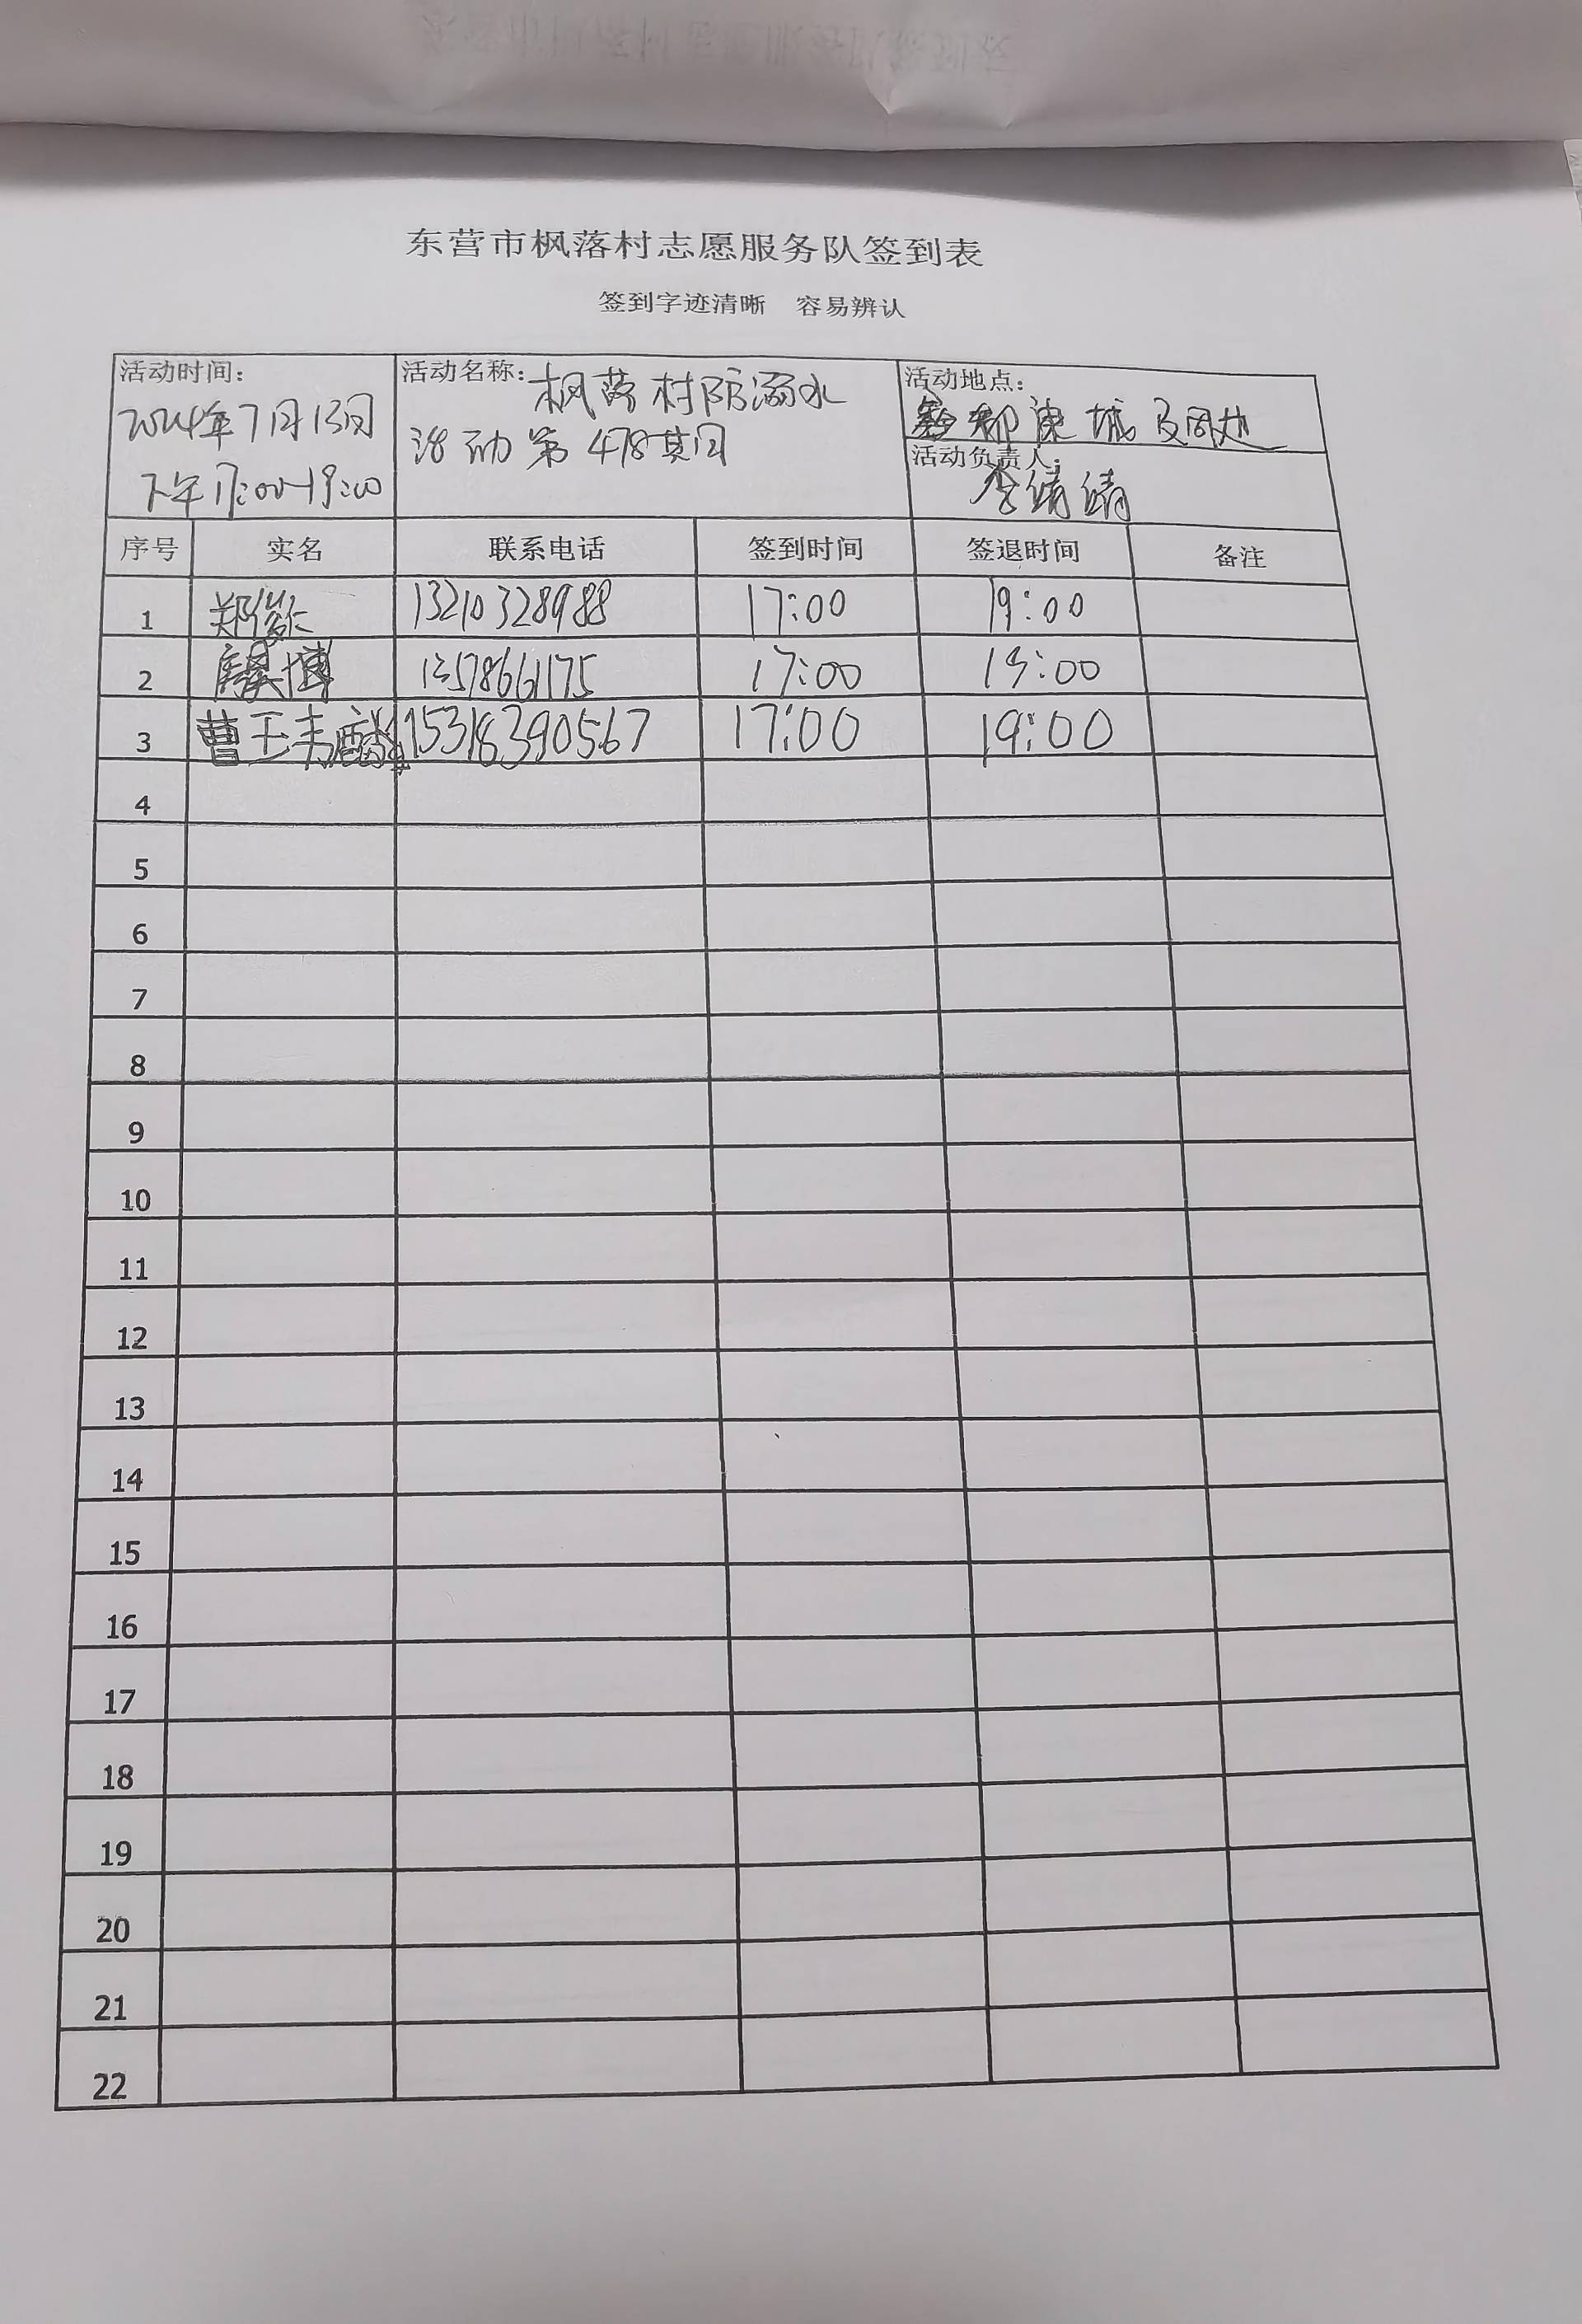 东营市枫落村志愿服务队签到表
签到字迹清晰 容易辨认
活动时间:
2024年7月13日
下午17:00-19:00
活动名称: 枫落村防溺水
活动第478期
活动地点:
都 城及周边
活动负责人:
李靖靖
序号 实名 联系电话 签到时间 签退时间 备注
1 郑 13210328988 17:00 19:00
2 博 13578661175 17:00 19:00
3 曹王韦 15318390567 17:00 19:00
4
5
6
7
8
9
10
11
12
13
14
15
16
17
18
19
20
21
22